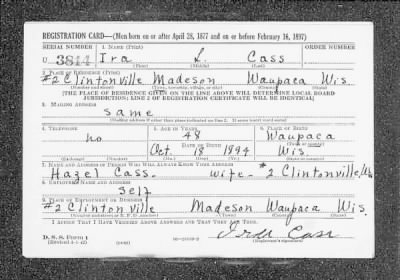 REGISTRATION CARD—(Men born on or after April 28, 1877 and on or before February 16, 1897)
SERIAL NUMBER 1. NAME (Print) ORDER NUMBER
U 3844 Ira L. Cass
(First) (Middle) (Last)
2. PLACE OF RESIDENCE (Print)
#2 Clintonville Madeson Waupaca Wis.
(Number and street) (Town, township, village, or city) (County) (State)
[THE PLACE OF RESIDENCE GIVEN ON THE LINE ABOVE WILL DETERMINE LOCAL BOARD
JURISDICTION; LINE 2 OF REGISTRATION CERTIFICATE WILL BE IDENTICAL]
3. MAILING ADDRESS
same
[Mailing address if other than place indicated on line 2. If same insert word same]
4. TELEPHONE 5. AGE IN YEARS 6. PLACE OF BIRTH
no 48 Waupaca
DATE OF BIRTH (Town or county)
Oct. 18 1894 Wis.
(Exchange) (Number) (Mo.) (Day) (Yr.) (State or country)
7. NAME AND ADDRESS OF PERSON WHO WILL ALWAYS KNOW YOUR ADDRESS
Hazel Cass. wife - #2 Clintonville, Wis
8. EMPLOYER'S NAME AND ADDRESS
Self
9. PLACE OF EMPLOYMENT OR BUSINESS
#2 Clintonville Madeson Waupaca Wis.
(Number and street or R. F. D. number) (Town) (County) (State)
I AFFIRM THAT I HAVE VERIFIED ABOVE ANSWERS AND THAT THEY ARE TRUE.
D. S. S. FORM 1
(Revised 4-1-42) (over)
Ira Cass
(Registrant's signature)